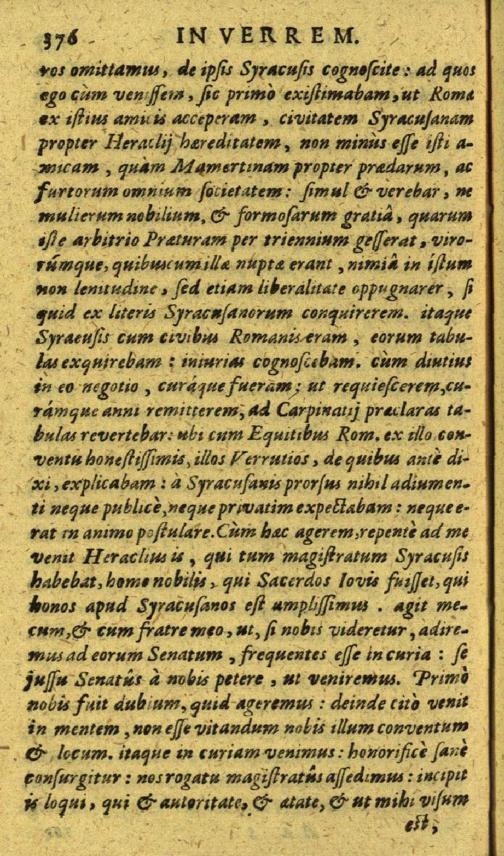 376 IN VERREM.
ros omittamus, de ipsis Syracusis cognoscite: ad quos
ego cùm venissem, sic primò existimabam, ut Romæ
ex istius amicis acceperam, civitatem Syracusanam
propter Heraclij hæreditatem, non minùs esse isti a-
micam, quàm Mamertinam propter prædarum, ac
furtorum omnium societatem: simul & verebar, ne
mulierum nobilium, & formosarum gratiâ, quarum
iste arbitrio Præturam per triennium gesserat, viro-
rúmque, quibuscum illæ nuptæ erant, nimiâ in istum
non lenitudine, sed etiam liberalitate oppugnarer, si
quid ex literis Syracusanorum conquirerem. itaque
Syracusis cum civibus Romanis eram, eorum tabu-
las exquirebam: iniurias cognoscebam. cùm diutius
in eo negotio, curáque fueram; ut requiescerem, cu-
rámque animi remitterem, ad Carpinatij præclaras ta-
bulas revertebar: ubi cum Equitibus Rom. ex illo con-
ventu honestissimis, illos Verrutios, de quibus antè di-
xi, explicabam: à Syracusanis prorsus nihil adiumen-
ti neque publicè, neque privatim expectabam: neque e-
rat in animo postulare. Cùm hæc agerem, repentè ad me
venit Heraclius is, qui tum magistratum Syracusis
habebat, homo nobilis, qui Sacerdos Iovis fuisset, qui
honos apud Syracusanos est amplissimus. agit me-
cum, & cum fratre meo, ut, si nobis videretur, adire-
mus ad eorum Senatum, frequentes esse in curia: se
jussu Senatûs à nobis petere, ut veniremus. Primò
nobis fuit dubium, quid ageremus: deinde citò venit
in mentem, non esse vitandum nobis illum conventum
& locum. itaque in curiam venimus: honorificè sanè
consurgitur: nos rogatu magistratûs assedimus: incipit
is loqui, qui & autoritate, & ætate, & ut mihi visum
est,